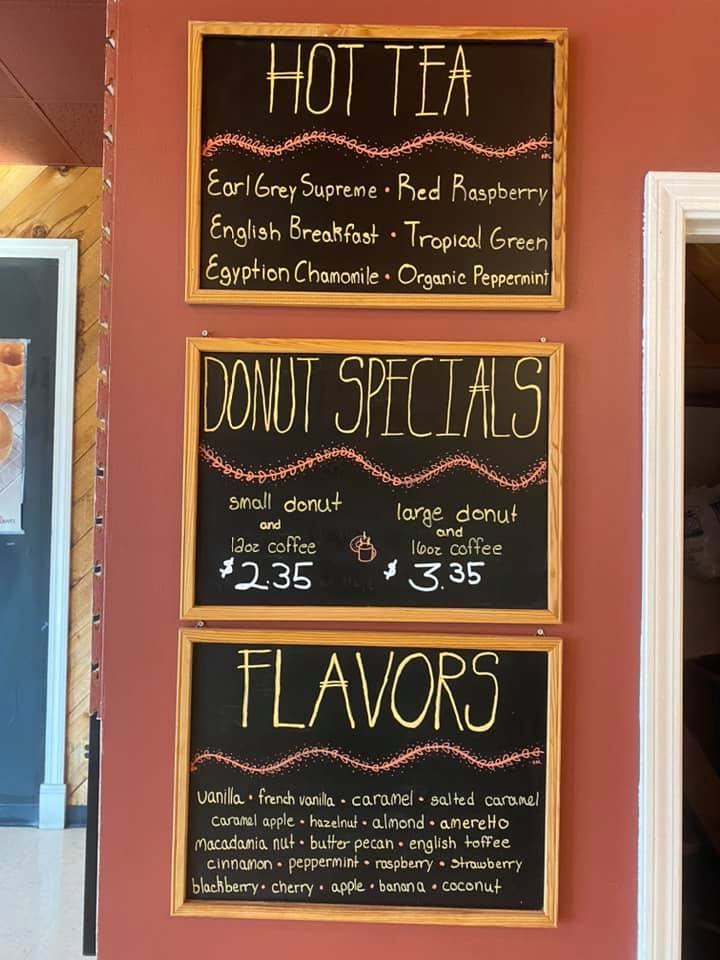 HOT TEA
Earl Grey Supreme • Red Raspberry
English Breakfast • Tropical Green
Egyption Chamomile • Organic Peppermint
DONUT SPECIALS
small donut
and
12oz coffee
$2.35
large donut
and
16oz coffee
$3.35
FLAVORS
vanilla • french vanilla • caramel • salted caramel
caramel apple • hazelnut • almond • ameretto
macadamia nut • butter pecan • english toffee
cinnamon • peppermint • raspberry • strawberry
blackberry • cherry • apple • banana • coconut